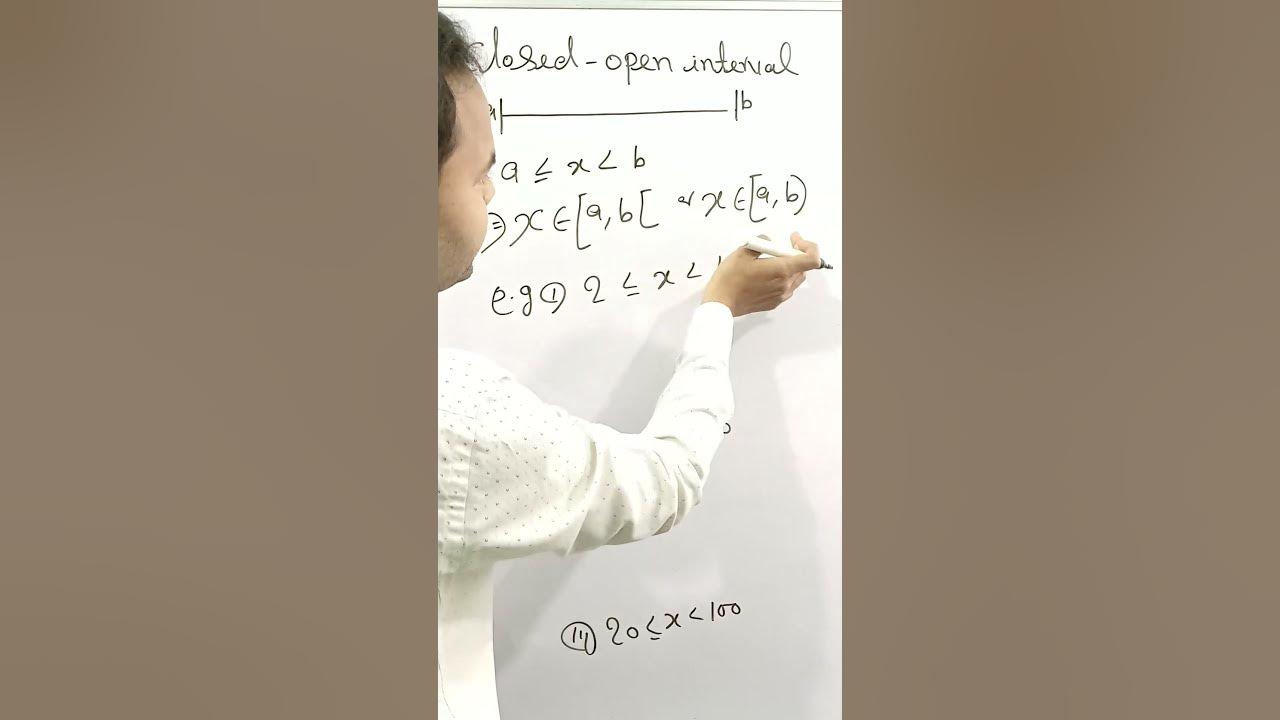 losed - open interval
a b
a ≤ x < b
⇒ x ∈ [a, b[ or x ∈ [a, b)
e.g ① 2 ≤ x <
20 ≤ x < 100